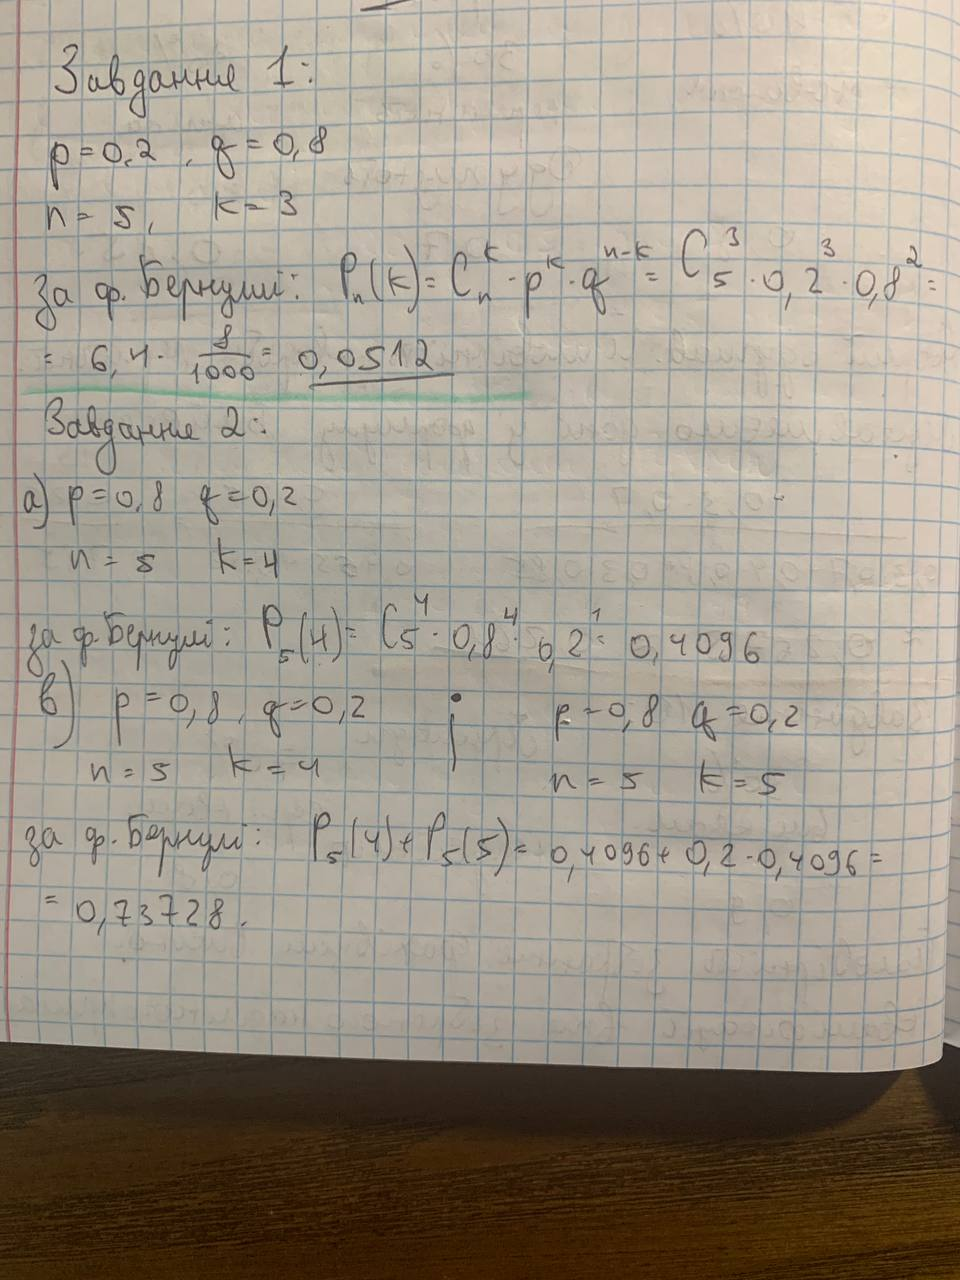 Завдання 1:
p=0,2, q=0,8
n=5, k=3
за ф. Бернуллі: Pₙ(k)=Cₙᵏ·pᵏ·qⁿ⁻ᵏ=C₅³·0,2³·0,8²=
= 6,4· 8/1000 = 0,0512
Завдання 2:
а) p=0,8 q=0,2
n=5 k=4
за ф. Бернулі: P₅(4)=C₅⁴·0,8⁴·0,2¹=0,4096
в) p=0,8, q=0,2 і p=0,8 q=0,2
n=5 k=4 n=5 k=5
за ф. Бернулі: P₅(4)+P₅(5)=0,4096+0,2·0,4096=
=0,73728.